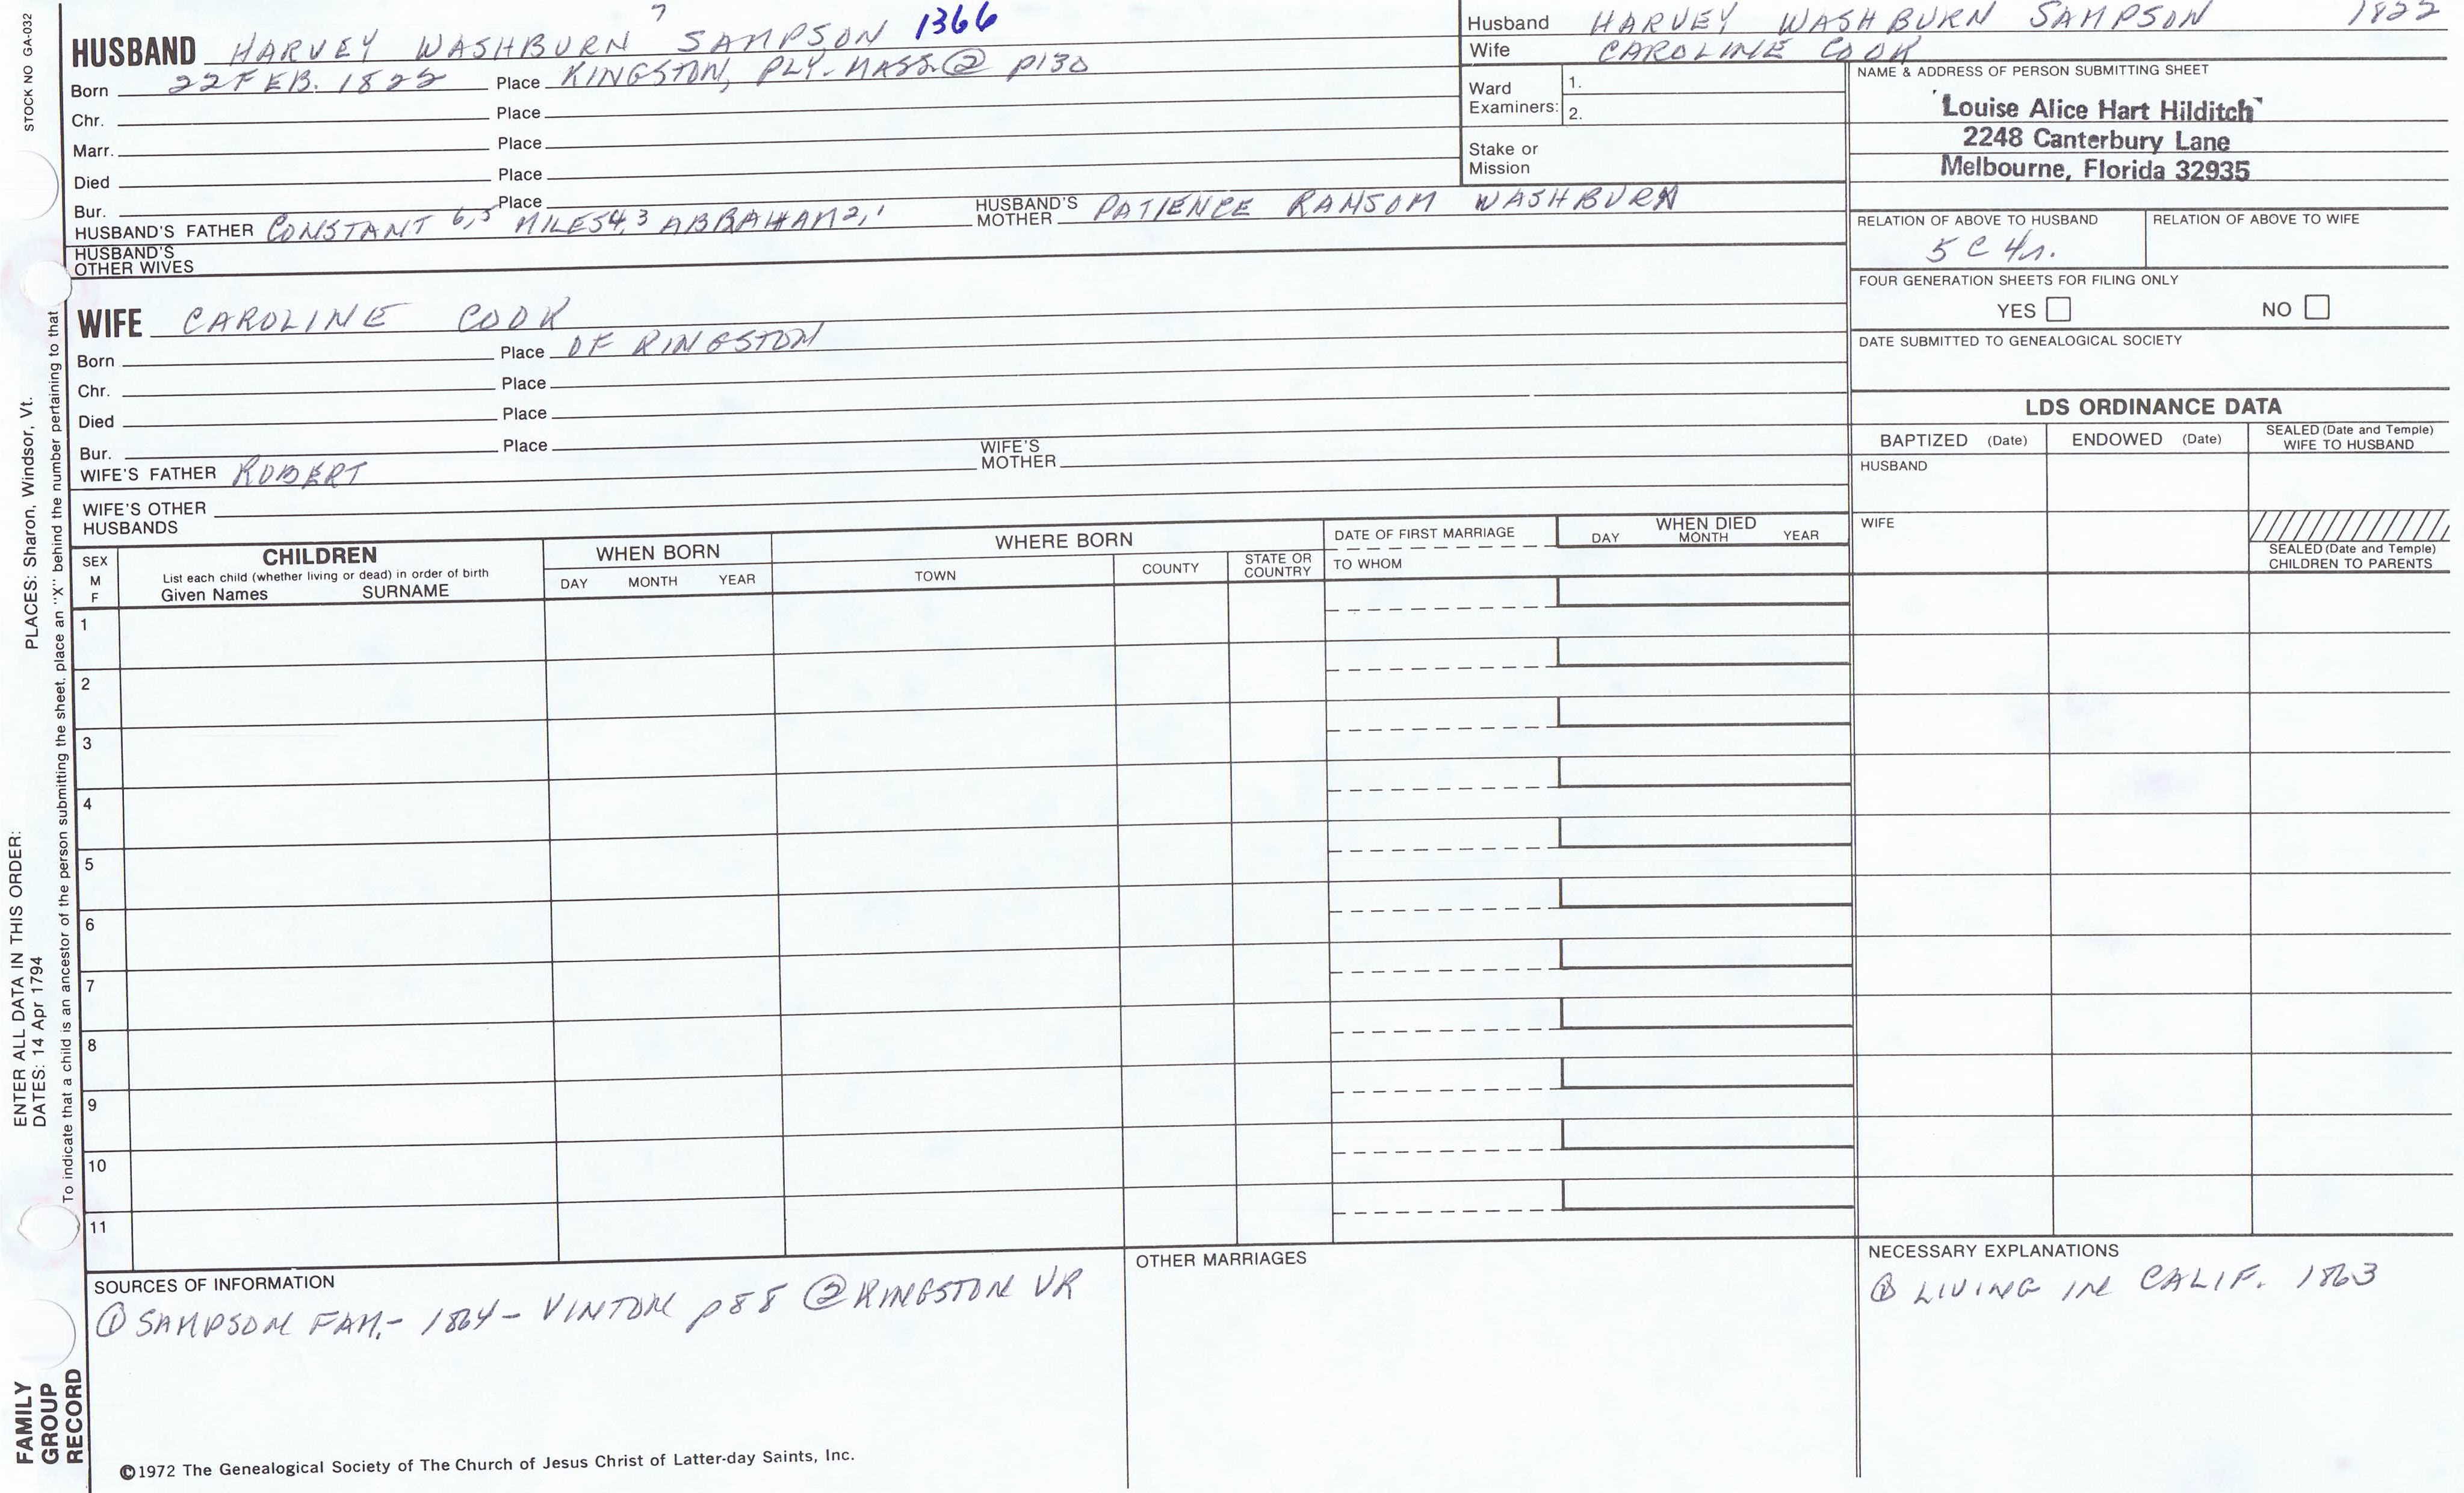 STOCK NO GA-032
7
HUSBAND HARVEY WASHBURN SAMPSON 1366
Born 22 FEB. 1822 Place KINGSTON, PLY. MASS. ② P130
Chr. Place
Marr. Place
Died Place
Bur. Place
HUSBAND'S FATHER CONSTANT 6,5 MILES 4,3 ABRAHAM 2,1 HUSBAND'S MOTHER PATIENCE RANSOM WASHBURN
HUSBAND'S OTHER WIVES
WIFE CAROLINE COOK
Born Place OF KINGSTON
Chr. Place
Died Place
Bur. Place
WIFE'S FATHER ROBERT WIFE'S MOTHER
WIFE'S OTHER HUSBANDS
Husband HARVEY WASHBURN SAMPSON 1822
Wife CAROLINE COOK
Ward Examiners: 1.
2.
Stake or Mission
NAME & ADDRESS OF PERSON SUBMITTING SHEET
Louise Alice Hart Hilditch
2248 Canterbury Lane
Melbourne, Florida 32935
RELATION OF ABOVE TO HUSBAND RELATION OF ABOVE TO WIFE
5 C 4r.
FOUR GENERATION SHEETS FOR FILING ONLY
YES NO
DATE SUBMITTED TO GENEALOGICAL SOCIETY
LDS ORDINANCE DATA
BAPTIZED (Date) ENDOWED (Date) SEALED (Date and Temple) WIFE TO HUSBAND
HUSBAND
WIFE
SEALED (Date and Temple) CHILDREN TO PARENTS
SEX M F
CHILDREN
List each child (whether living or dead) in order of birth
Given Names SURNAME
WHEN BORN
DAY MONTH YEAR
WHERE BORN
TOWN COUNTY STATE OR COUNTRY
DATE OF FIRST MARRIAGE
TO WHOM
WHEN DIED
DAY MONTH YEAR
1
2
3
4
5
6
7
8
9
10
11
SOURCES OF INFORMATION
① SAMPSON FAM. - 1864 - VINTON p88 ② KINGSTON VR
OTHER MARRIAGES
NECESSARY EXPLANATIONS
① LIVING IN CALIF. 1863
©1972 The Genealogical Society of The Church of Jesus Christ of Latter-day Saints, Inc.
FAMILY GROUP RECORD
ENTER ALL DATA IN THIS ORDER:
DATES: 14 Apr 1794 PLACES: Sharon, Windsor, Vt.
To indicate that a child is an ancestor of the person submitting the sheet, place an "X" behind the number pertaining to that